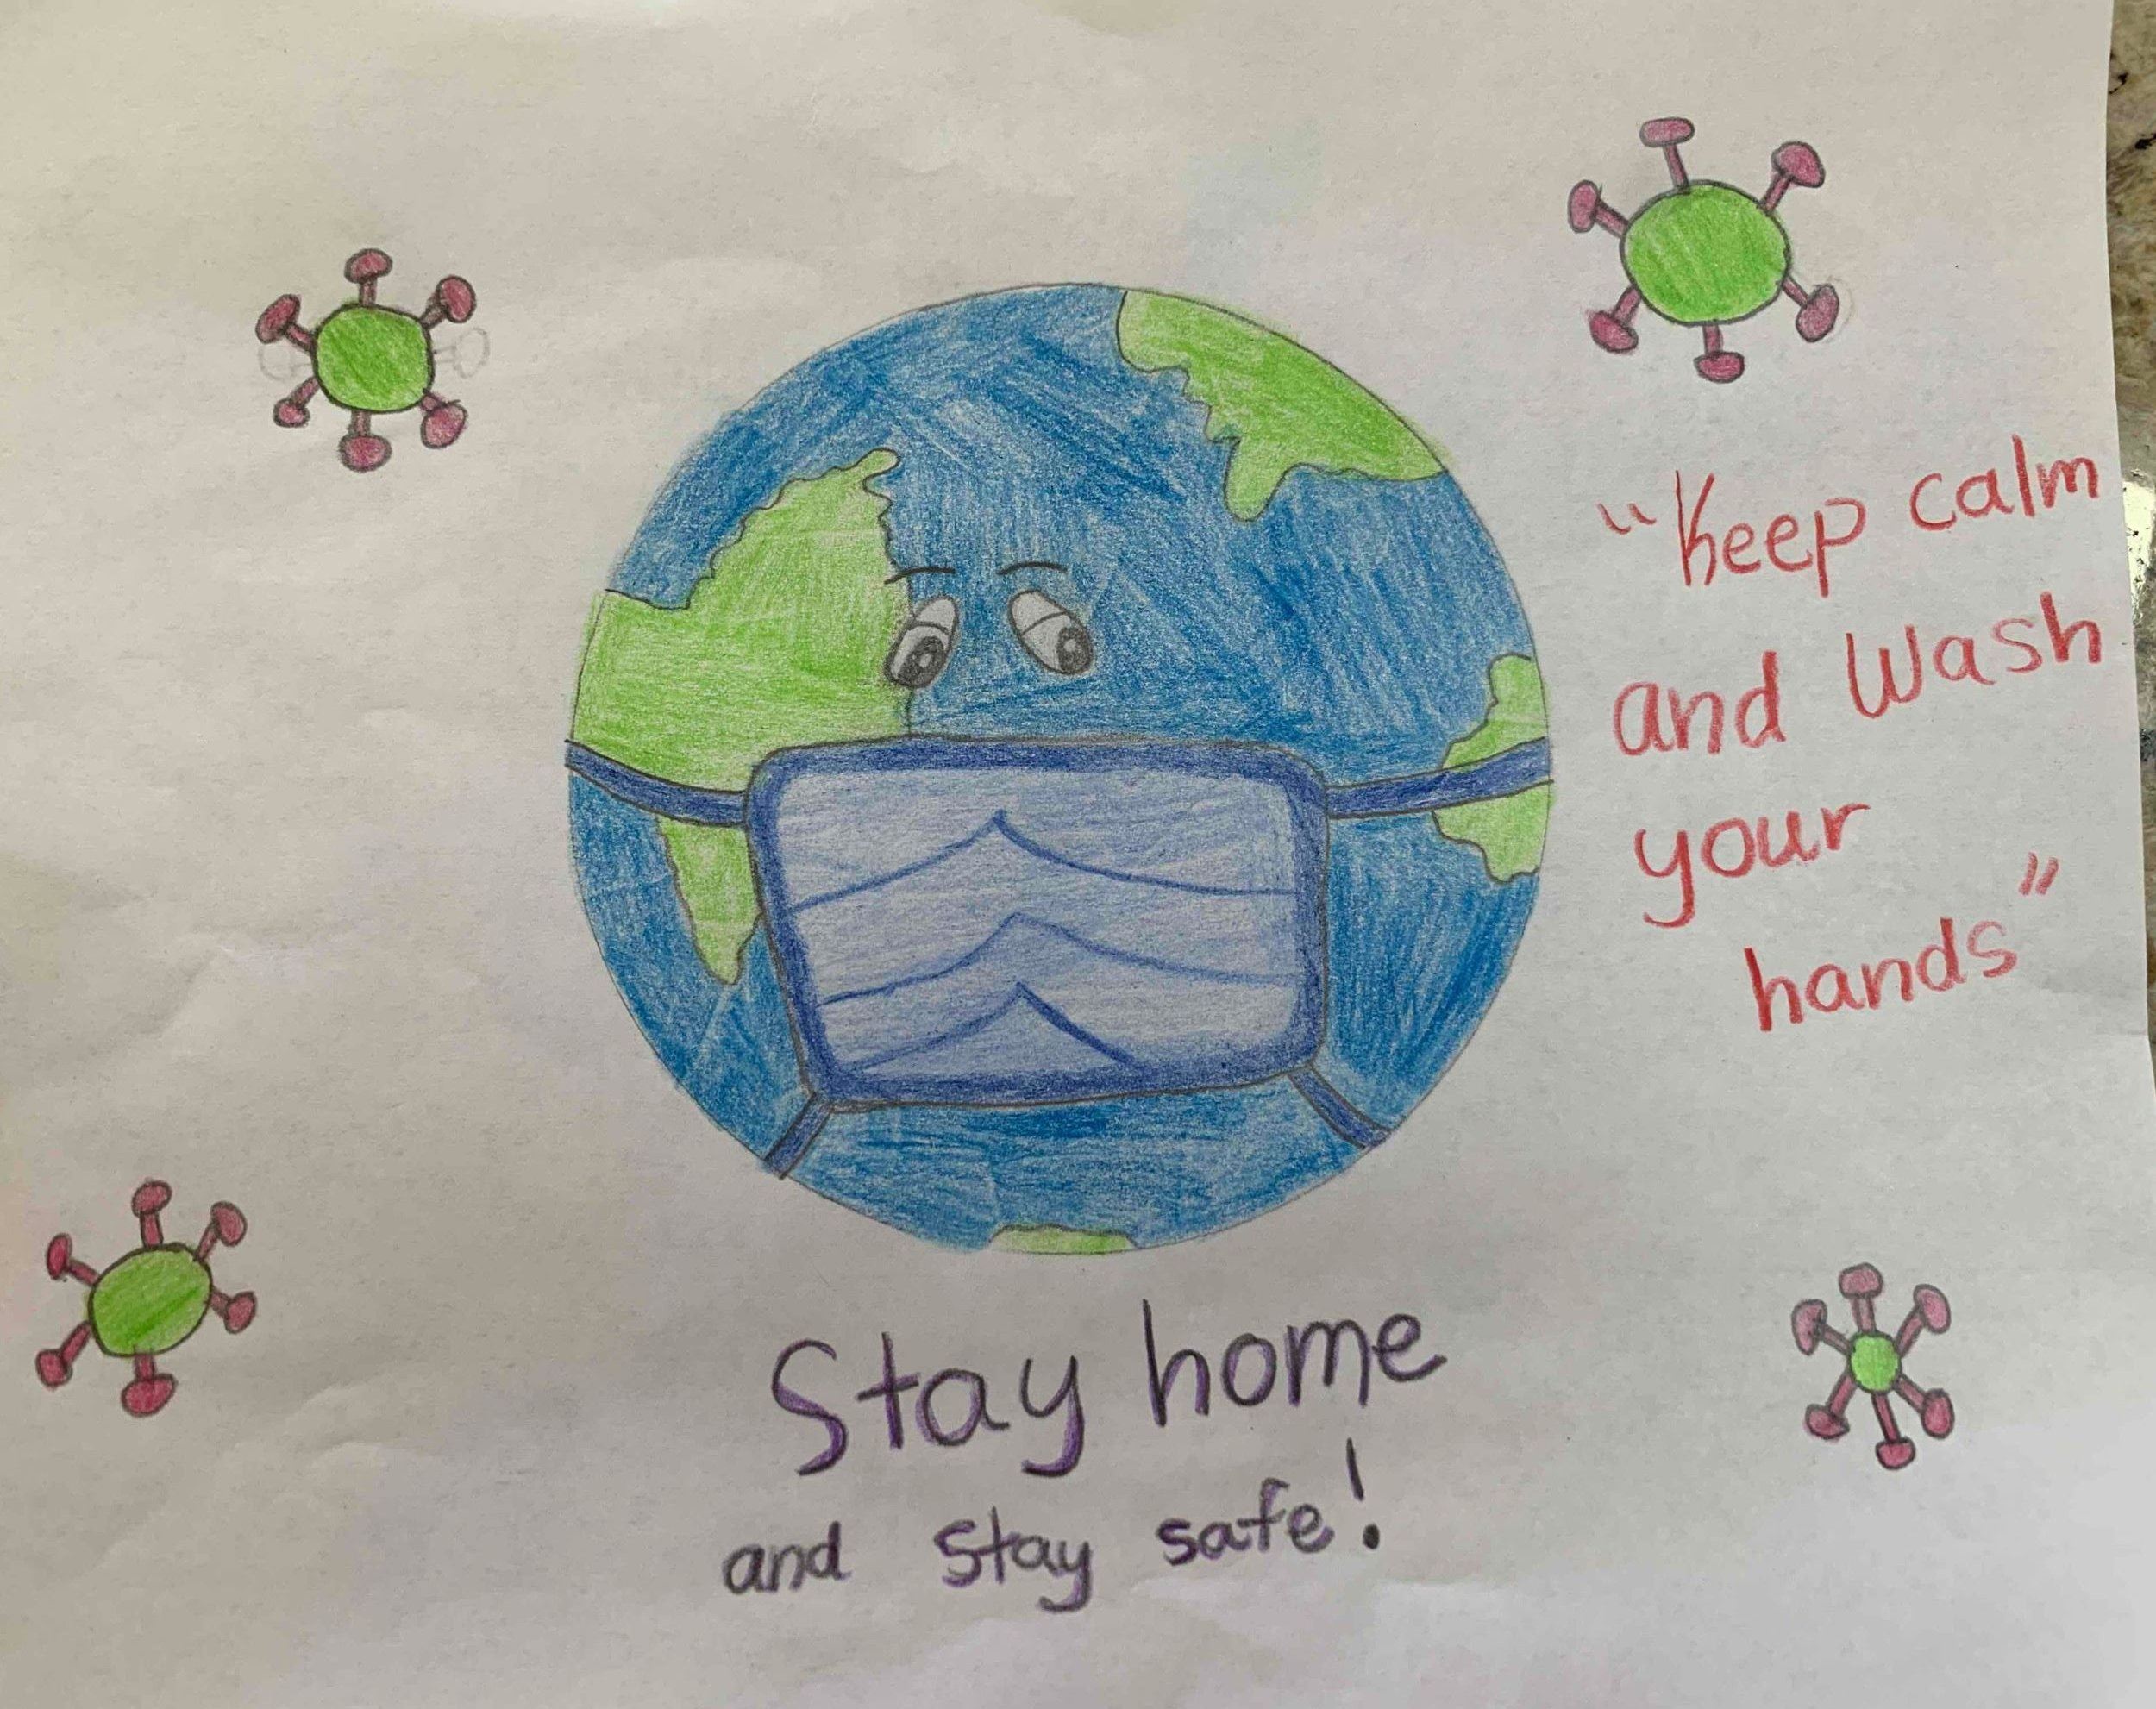 "Keep calm
and Wash
your
hands"
Stay home
and stay safe!